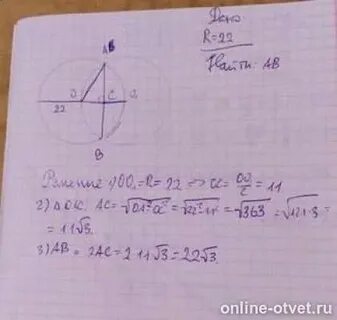 Дано
R=22
Найти: AB
AB
O
C
22
B
Решение 1) OO₁=R=22 => OC=OO₁/2=11
2) AC=√OA²-OC²=√22²-11²=√363=√121·3=
=11√3.
3) AB=2AC=2·11√3=22√3.
online-otvet.ru